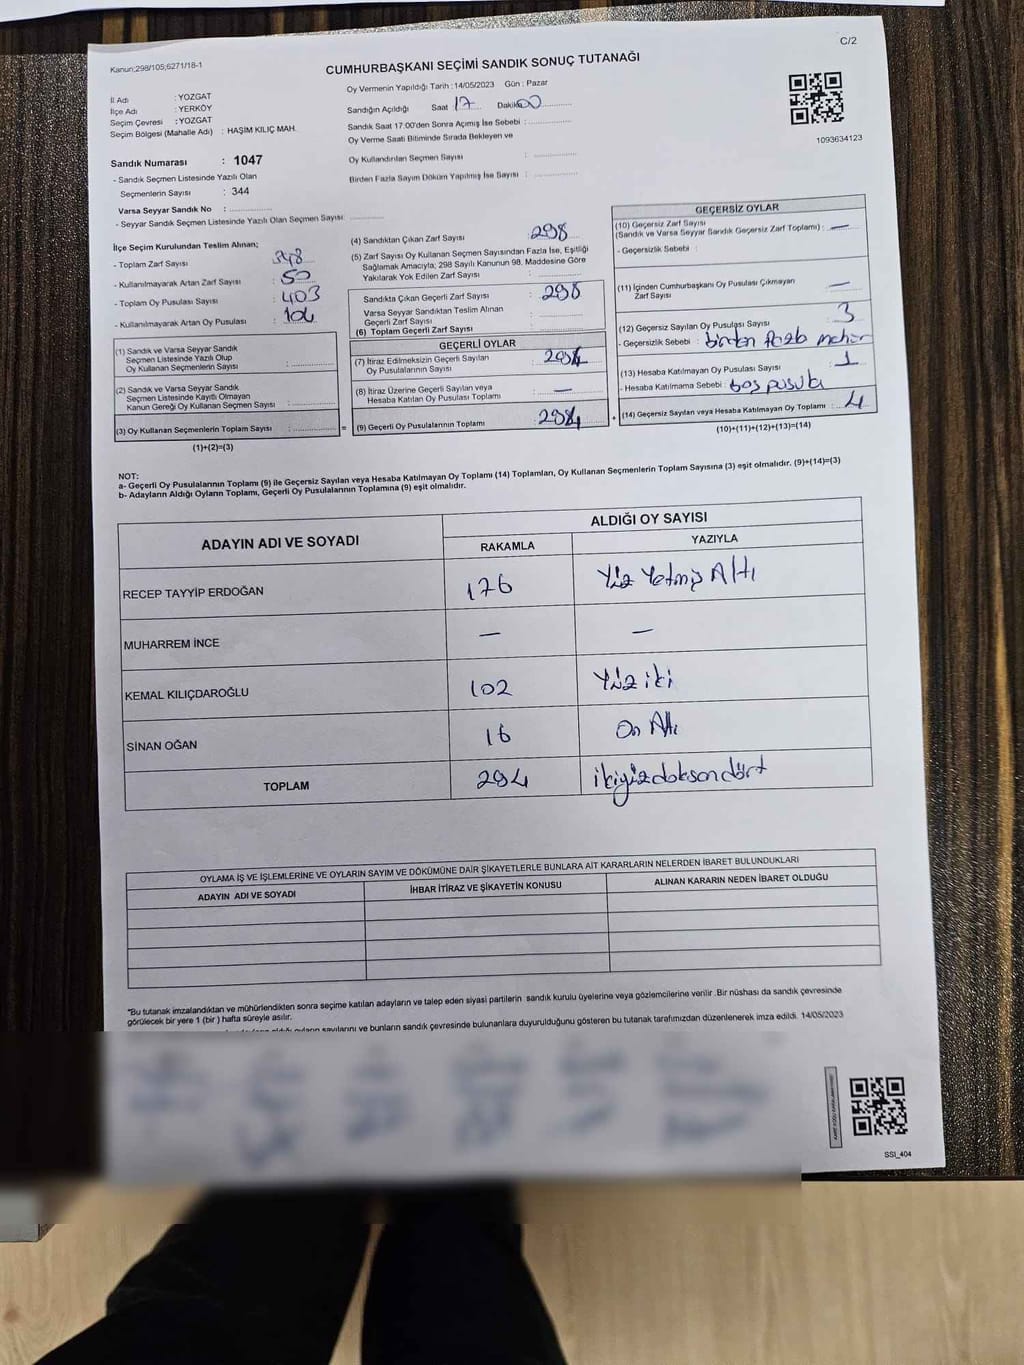 C/2
Kanun;298/105;6271/18-1
CUMHURBAŞKANI SEÇİMİ SANDIK SONUÇ TUTANAĞI
İl Adı : YOZGAT
İlçe Adı : YERKÖY
Seçim Çevresi : YOZGAT
Seçim Bölgesi (Mahalle Adı) : HAŞİM KILIÇ MAH.
Oy Vermenin Yapıldığı Tarih : 14/05/2023 Gün : Pazar
Sandığın Açıldığı Saat 17 Dakika 00
Sandık Saat 17:00'den Sonra Açımış İse Sebebi :
Oy Verme Saati Bitiminde Sırada Bekleyen ve
Oy Kullandırılan Seçmen Sayısı :
Birden Fazla Sayım Döküm Yapılmış İse Sayısı :
1093634123
Sandık Numarası : 1047
- Sandık Seçmen Listesinde Yazılı Olan
Seçmenlerin Sayısı : 344
Varsa Seyyar Sandık No :
- Seyyar Sandık Seçmen Listesinde Yazılı Olan Seçmen Sayısı:
İlçe Seçim Kurulundan Teslim Alınan;
- Toplam Zarf Sayısı : 348
- Kullanılmayarak Artan Zarf Sayısı : 50
- Toplam Oy Pusulası Sayısı : 403
- Kullanılmayarak Artan Oy Pusulası : 104
(1) Sandık ve Varsa Seyyar Sandık
Seçmen Listesinde Yazılı Olup
Oy Kullanan Seçmenlerin Sayısı :
(2) Sandık ve Varsa Seyyar Sandık
Seçmen Listesinde Kayıtlı Olmayan
Kanun Gereği Oy Kullanan Seçmen Sayısı :
(3) Oy Kullanan Seçmenlerin Toplam Sayısı :
(1)+(2)=(3)
=
(4) Sandıktan Çıkan Zarf Sayısı : 298
(5) Zarf Sayısı Oy Kullanan Seçmen Sayısından Fazla İse, Eşitliği
Sağlamak Amacıyla; 298 Sayılı Kanunun 98. Maddesine Göre
Yakılarak Yok Edilen Zarf Sayısı :
Sandıkta Çıkan Geçerli Zarf Sayısı : 298
Varsa Seyyar Sandıktan Teslim Alınan
Geçerli Zarf Sayısı :
(6) Toplam Geçerli Zarf Sayısı :
GEÇERLİ OYLAR
(7) İtiraz Edilmeksizin Geçerli Sayılan
Oy Pusulalarının Sayısı : 294
(8) İtiraz Üzerine Geçerli Sayılan veya
Hesaba Katılan Oy Pusulası Toplamı : —
(9) Geçerli Oy Pusulalarının Toplamı : 294
+
GEÇERSİZ OYLAR
(10) Geçersiz Zarf Sayısı
(Sandık ve Varsa Seyyar Sandık Geçersiz Zarf Toplamı) : —
- Geçersizlik Sebebi :
(11) İçinden Cumhurbaşkanı Oy Pusulası Çıkmayan
Zarf Sayısı : —
(12) Geçersiz Sayılan Oy Pusulası Sayısı : 3
- Geçersizlik Sebebi : birden fazla mühür
(13) Hesaba Katılmayan Oy Pusulası Sayısı : 1
- Hesaba Katılmama Sebebi : boş pusula
(14) Geçersiz Sayılan veya Hesaba Katılmayan Oy Toplamı : 4
(10)+(11)+(12)+(13)=(14)
NOT:
a- Geçerli Oy Pusulalarının Toplamı (9) ile Geçersiz Sayılan veya Hesaba Katılmayan Oy Toplamı (14) Toplamları, Oy Kullanan Seçmenlerin Toplam Sayısına (3) eşit olmalıdır. (9)+(14)=(3)
b- Adayların Aldığı Oyların Toplamı, Geçerli Oy Pusulalarının Toplamına (9) eşit olmalıdır.
ADAYIN ADI VE SOYADI
ALDIĞI OY SAYISI
RAKAMLA YAZIYLA
RECEP TAYYİP ERDOĞAN 176 Yüz Yetmiş Altı
MUHARREM İNCE — —
KEMAL KILIÇDAROĞLU 102 Yüz iki
SİNAN OĞAN 16 On Altı
TOPLAM 294 ikiyüzdoksandört
OYLAMA İŞ VE İŞLEMLERİNE VE OYLARIN SAYIM VE DÖKÜMÜNE DAİR ŞİKAYETLERLE BUNLARA AİT KARARLARIN NELERDEN İBARET BULUNDUKLARI
ADAYIN ADI VE SOYADI İHBAR İTİRAZ VE ŞİKAYETİN KONUSU ALINAN KARARIN NEDEN İBARET OLDUĞU
*Bu tutanak imzalandıktan ve mühürlendikten sonra seçime katılan adayların ve talep eden siyasi partilerin sandık kurulu üyelerine veya gözlemcilerine verilir .Bir nüshası da sandık çevresinde
görülecek bir yere 1 (bir ) hafta süreyle asılır.
oyların sayılarını ve bunların sandık çevresinde bulunanlara duyurulduğunu gösteren bu tutanak tarafımızdan düzenlenerek imza edildi. 14/05/2023
SSI_404